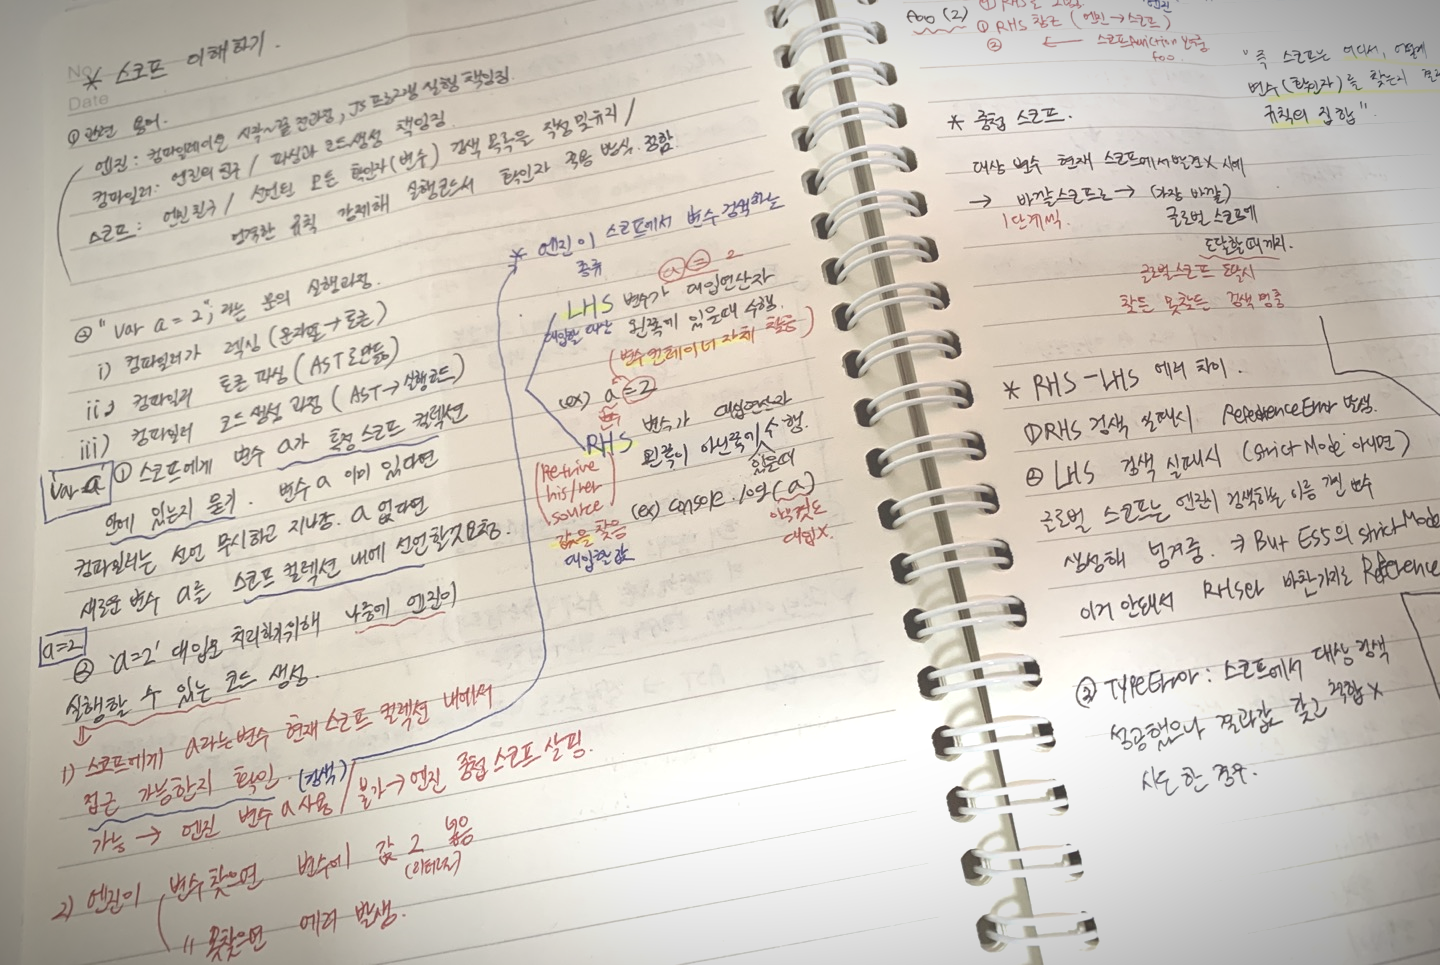 No.
Date
* 스코프 이해하기.
① 관련 용어.
엔진 : 컴파일레이션 시작~끝 전과정, JS 프로그램 실행 책임짐
컴파일러 : 엔진의 친구 / 파싱과 코드생성 책임짐
스코프 : 엔진친구 / 선언된 모든 확인자(변수) 검색 목록을 작성 및 유지 /
엄격한 규칙 강제해 실행코드서 확인자 적용 방식 정함
② "Var a = 2;" 라는 문의 실행과정.
i) 컴파일러가 렉싱 (문자열 → 토큰)
ii) 컴파일러 토큰 파싱 (AST로 만듦)
iii) 컴파일러 코드 생성 과정 (AST → 실행코드)
Var a
① 스코프에게 변수 a가 특정 스코프 컬렉션
안에 있는지 묻기. 변수 a 이미 있다면
컴파일러는 선언 무시하고 지나감. a 없다면
새로운 변수 a를 스코프 컬렉션 내에 선언할것 요청.
a=2
② 'a=2' 대입문 처리하기위해 나중에 엔진이
실행할 수 있는 코드 생성.
1) 스코프에게 a라는 변수 현재 스코프 컬렉션 내에서
접근 가능한지 확인. (검색)
가능 → 엔진 변수 a 사용 / 불가 → 엔진 중첩 스코프 살핌.
2) 엔진이 변수 찾으면 변수에 값 2 넣음
" 못찾으면 에러 발생.
* 엔진이 스코프에서 변수 검색하는
종류
a = 2
LHS 변수가 대입연산자
대입할 대상 왼쪽에 있을때 수행.
(변수 컨테이너 자체 찾음)
(ex) a = 2
변수
RHS 변수가 대입연산자
왼쪽이 아닌쪽에 수행.
있을때
(Retrive
his/her
source)
(ex) console.log(a)
값을 찾음
아무것도
대입X
대입한 값
foo(2)
① RHS 참조 (엔진 → 스코프)
②
← 스코프 function
foo
"즉 스코프는 어디서, 어떻게
변수(확인자)를 찾는지
규칙의 집합"
* 중첩 스코프.
대상 변수 현재 스코프에서 발견X 시에
→ 바깥스코프로 → (가장 바깥)
1단계씩. 글로벌 스코프에
도달할때까지.
글로벌스코프 도달시
찾든 못찾든 검색 멈춤
* RHS-LHS 에러 차이.
① RHS 검색 실패시 ReferenceError 발생.
② LHS 검색 실패시 (Strict Mode 아니면)
글로벌 스코프는 엔진이 검색하는 이름 가진 변수
생성해 넘겨줌. → But ES5의 strict Mode
이거 안돼서 RHS와 마찬가지로 Reference
③ TypeError : 스코프에서 대상 검색
성공했으나 결과값 갖고 적합X
시도 한 경우.